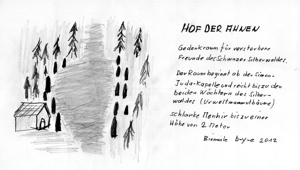 HOF DER AHNEN
Gedenkraum für verstorbene
Freunde des Schweizer Silberwaldes.
Der Raum beginnt ab der Simon-
Juda-Kapelle und reicht bis zu den
beiden Wächtern des Silber-
waldes (Urweltmammutbäume)
schlanke Menhir bis zu einer
Höhe von 2 Meter
Biennale 2012